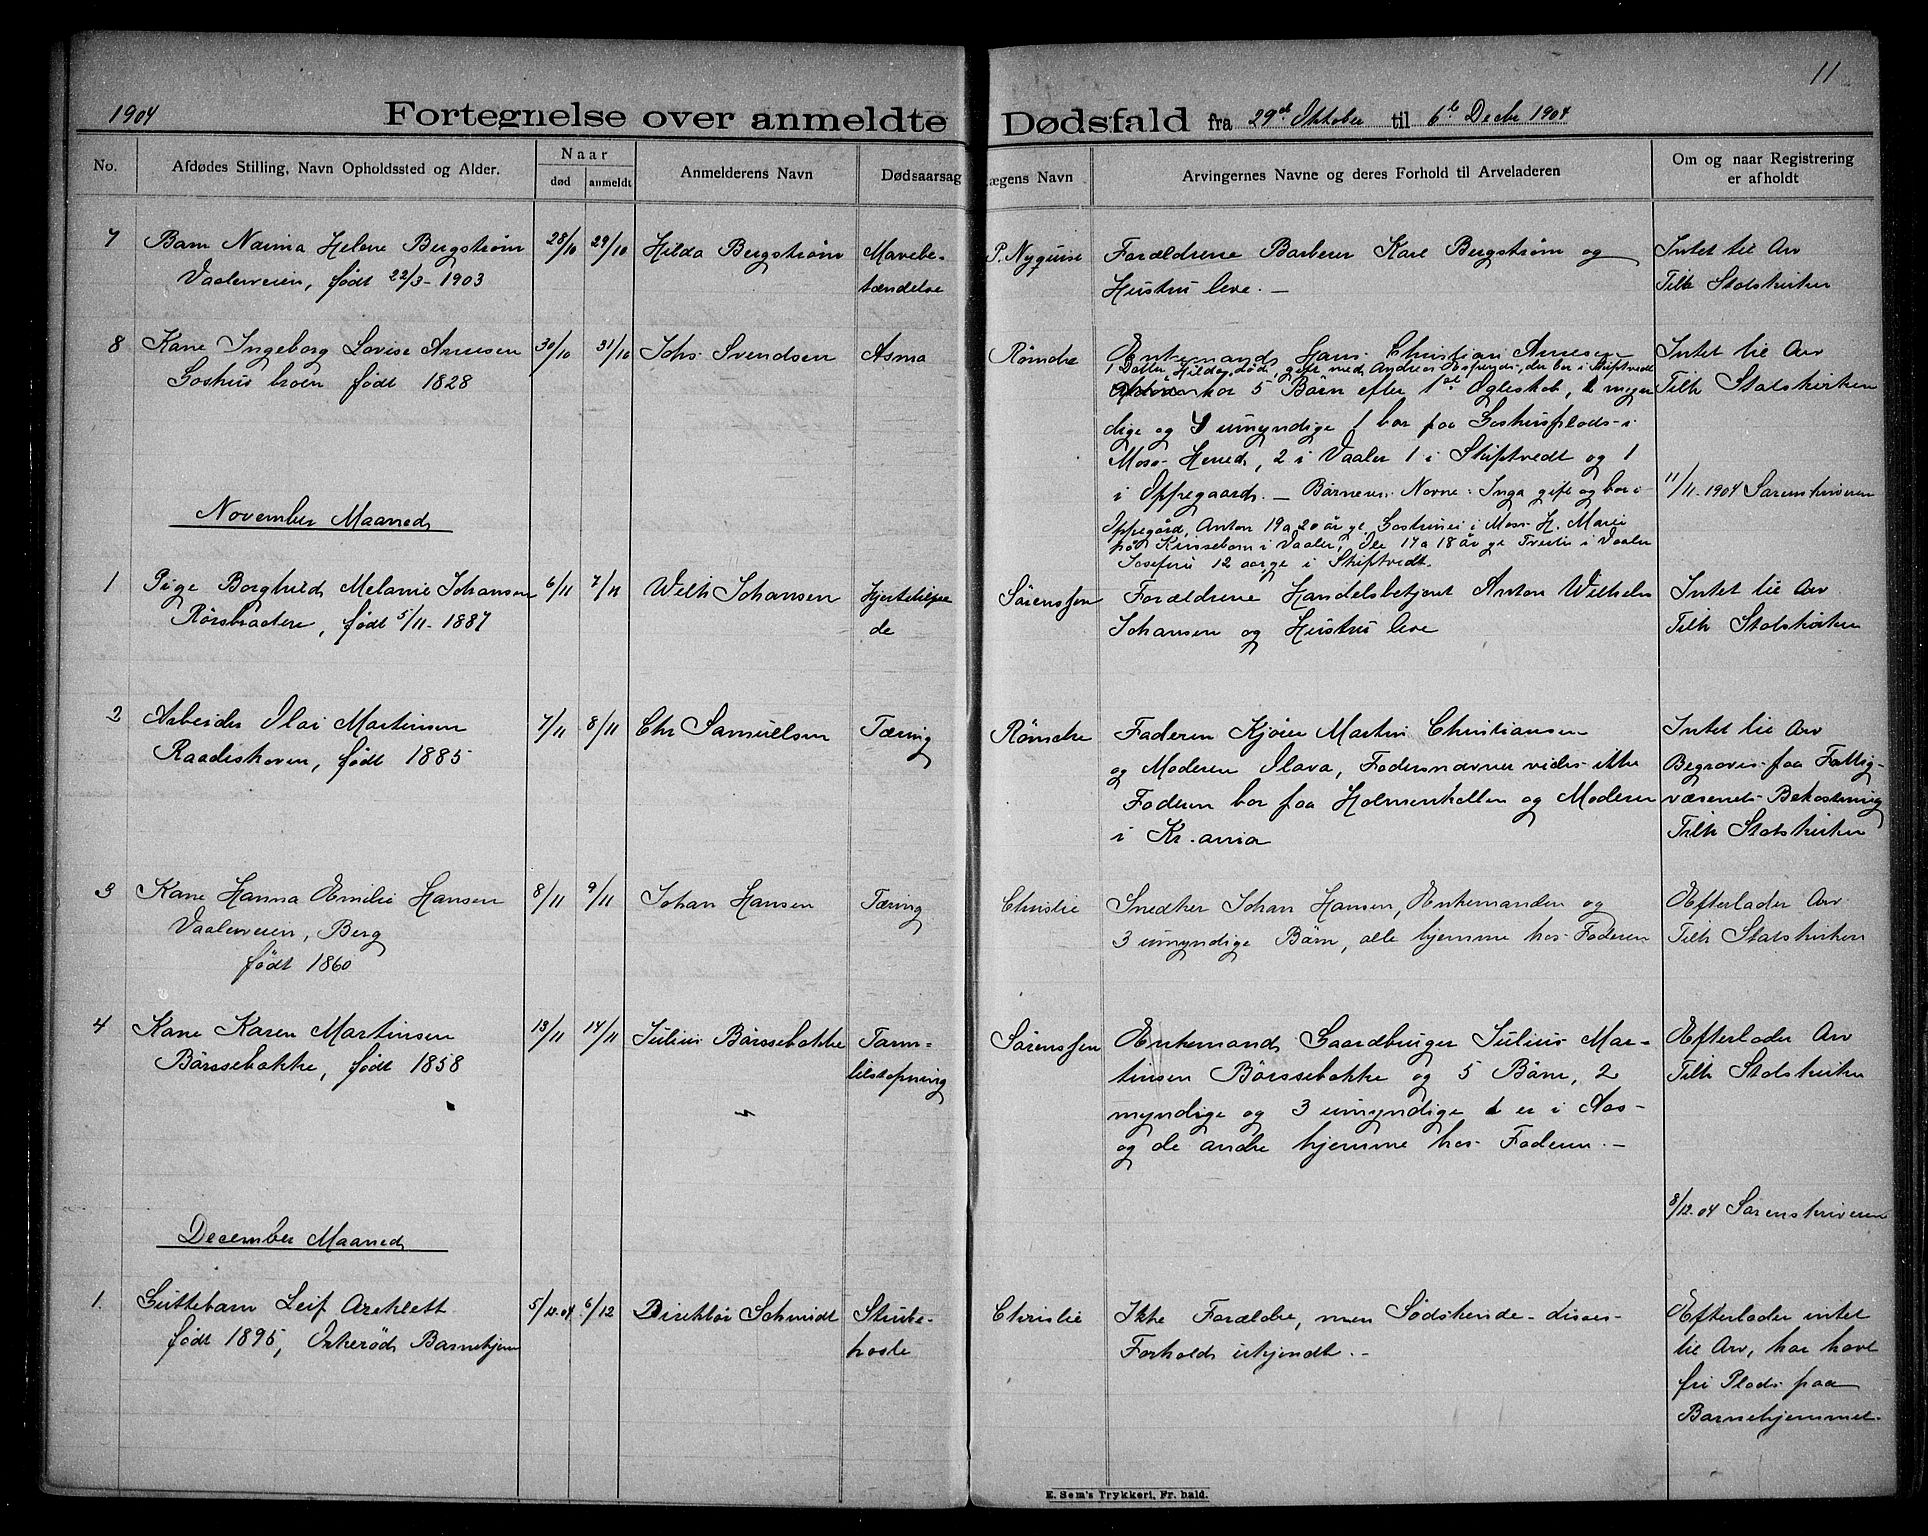 11
1904 Fortegnelse over anmeldte Dødsfald fra 29de Oktober til 6te Decbr 1904
No. Afdødes Stilling, Navn Opholdssted og Alder. Naar død anmeldt Anmelderens Navn Dødsaarsag Lægens Navn Arvingernes Navne og deres Forhold til Arveladeren Om og naar Registrering er afholdt
7 Barn Naima Helene Bergstrøm 28/10 29/10 Hilda Bergstrøm Mavebe- P. Nyquise Forældrene Barberer Karl Bergstrøm og Intet til Arv
Vaalerveien, født 22/3-1903 tændelse Hustru leve. — Tilh Statskirken
8 Kone Ingeborg Lovise Arnesen 30/10 31/10 Johs Svendsen Asma Rømcke Enkemand Hans Christian Arnesen Intet til Arv
1 Datter, Hilda, død, gift med Andreas Espenes, der bor i Skiptvedt
Goshusbroen født 1828 har 5 Børn efter 1ste Ægteskab, 1 myn- Tilh Statskirken
dige og 4 umyndige 1 bor paa Goshusplads i
Moss Herred, 2 i Vaaler 1 i Skiptvedt og 1
i Oppegaard. — Børnenes Navne: Inga gift og bor i 11/11-1904 Sorenskriveren
November Maaned
Oppegård, Anton 19 a 20 år gl Goshus i Moss H. Marie
på Kirsebom i Vaaler, Ole 17 a 18 år gl Tveter i Vaaler
Josefine 12 aar gl i Skiptvedt.
1 Pige Borghild Melanie Johansen 6/11 7/11 Wilh Johansen Hjerteklapfe Sørenssen Forældrene Handelsbetjent Anton Wilhelm Intet til Arv
Rørsbraatene, født 5/11-1887 de Johansen og Hustru leve Tilh Statskirken
2 Arbeider Olai Martinsen 7/11 8/11 Chr Samuelsen Tæring Rømcke Faderen Kjører Martin Christiansen Intet til Arv
Raadiskoven, født 1885 og Moderen Olava, Fadersnavnet vides ikke Begraves paa Fattig-
Faderen bor paa Holmenkollen og Moderen væsenets Bekostning
i Kr.ania Tilh Statskirken
3 Kone Hanna Emilie Hansen 8/11 9/11 Johan Hansen Tæring Christie Snedker Johan Hansen, Enkemanden og Efterlader Arv
Vaalerveien, Berg 3 umyndige Børn, alle hjemme hos Faderen Tilh Statskirken
født 1860
4 Kone Karen Martinsen 13/11 14/11 Julius Børssebakke Tarm- Sørenssen Enkemand Gaardbruger Julius Mar- Efterlader Arv
Børssebakke, født 1858 tilstopning tinsen Børssebakke og 5 Børn, 2 Tilh Statskirken
myndige og 3 umyndige 1 er i Aas
og de andre hjemme hos Faderen. —
8/12-04 Sorenskriveren
December Maaned
1. Guttebarn Leif Areklett 5/12.04 6/12 Direktør Schmidt Strube- Christie Ikke Forældre, men Søskende - disses Efterlader intet
født 1895, Orkerød Barnehjem hoste Forhold ukjendt. — til Arv, har havt
fri Plads paa
Barnehjemmet.
E. Sem's Trykkeri, Fr. hald.